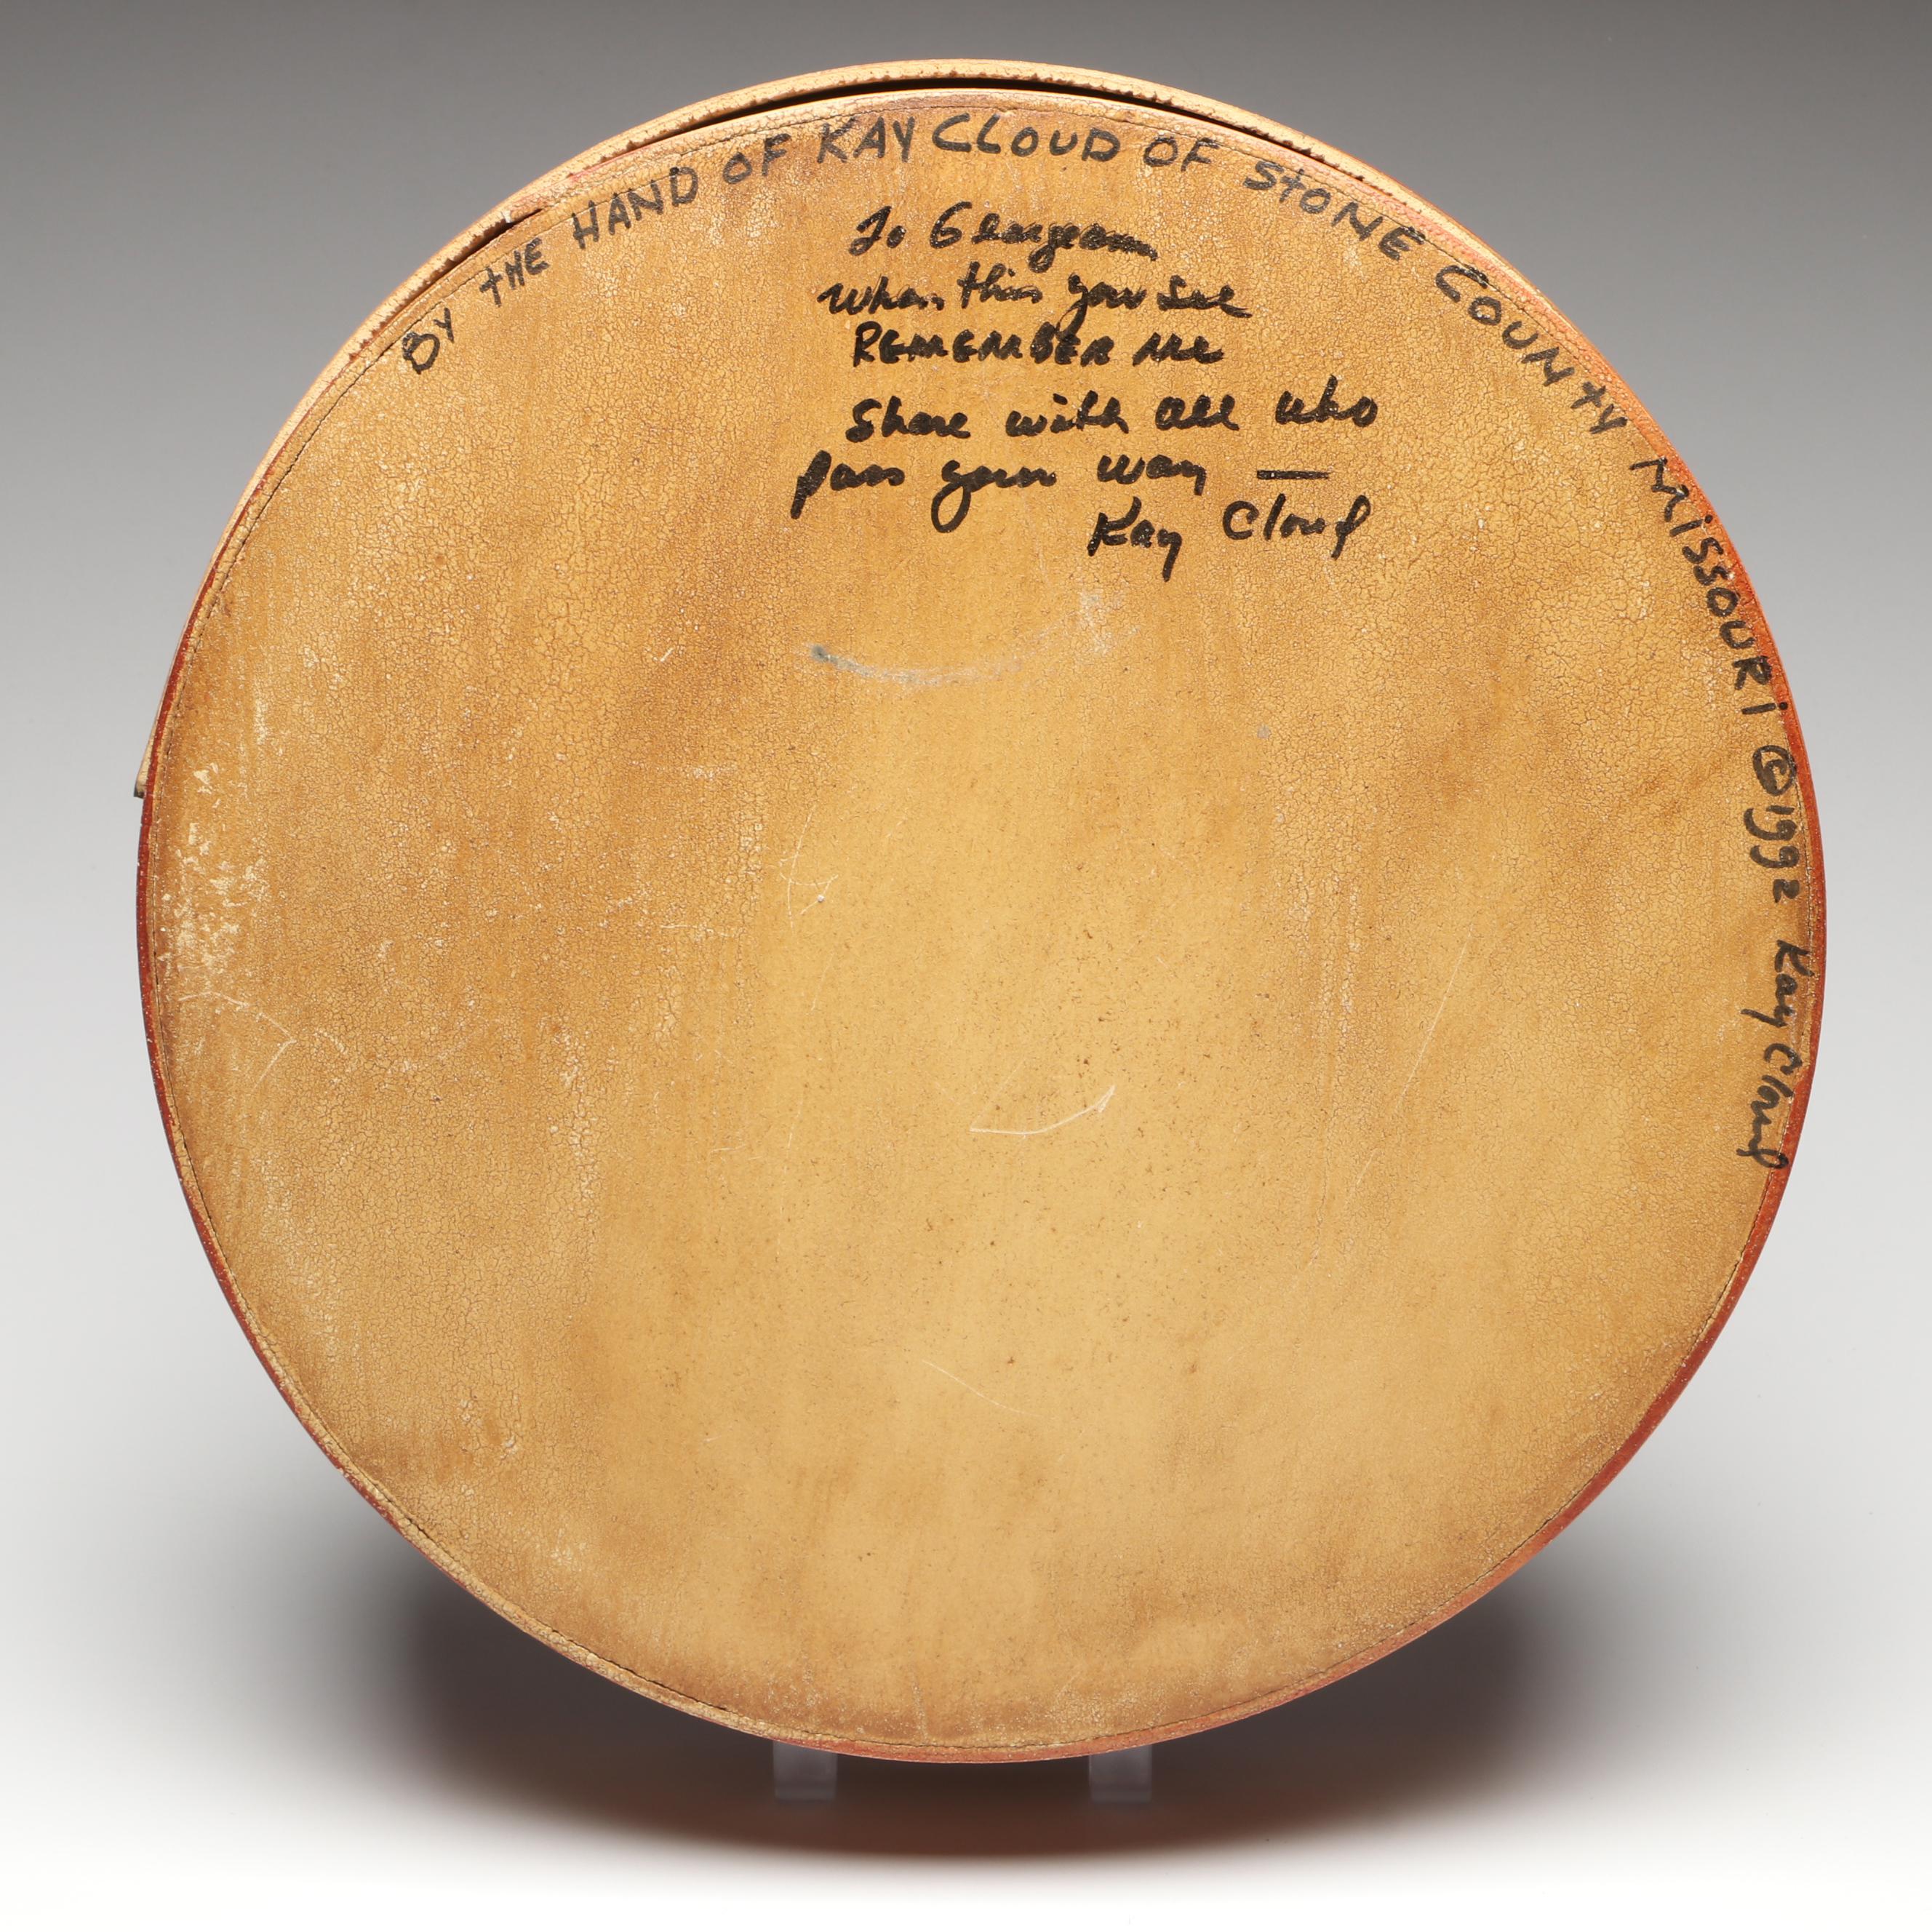 BY tHE HAND OF KAY CLOUD OF StONE COUNtY MiSSOURi ©1992 Kay Cloud
To Georgeann
When this you see
REMEMBER Me
Share with all who
pass your way —
Kay Cloud